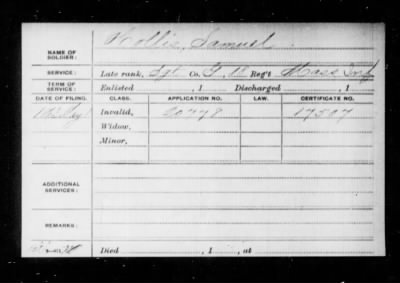 Hollis, Samuel.
NAME OF SOLDIER:
SERVICE: Late rank, Sgt Co. G, 18 Reg't Mass Inf
TERM OF SERVICE: Enlisted , 1 Discharged , 1
DATE OF FILING. CLASS. APPLICATION NO. LAW. CERTIFICATE NO.
Invalid, 20778 17597
Widow,
Minor,
ADDITIONAL SERVICES:
REMARKS:
Died , 1 , at